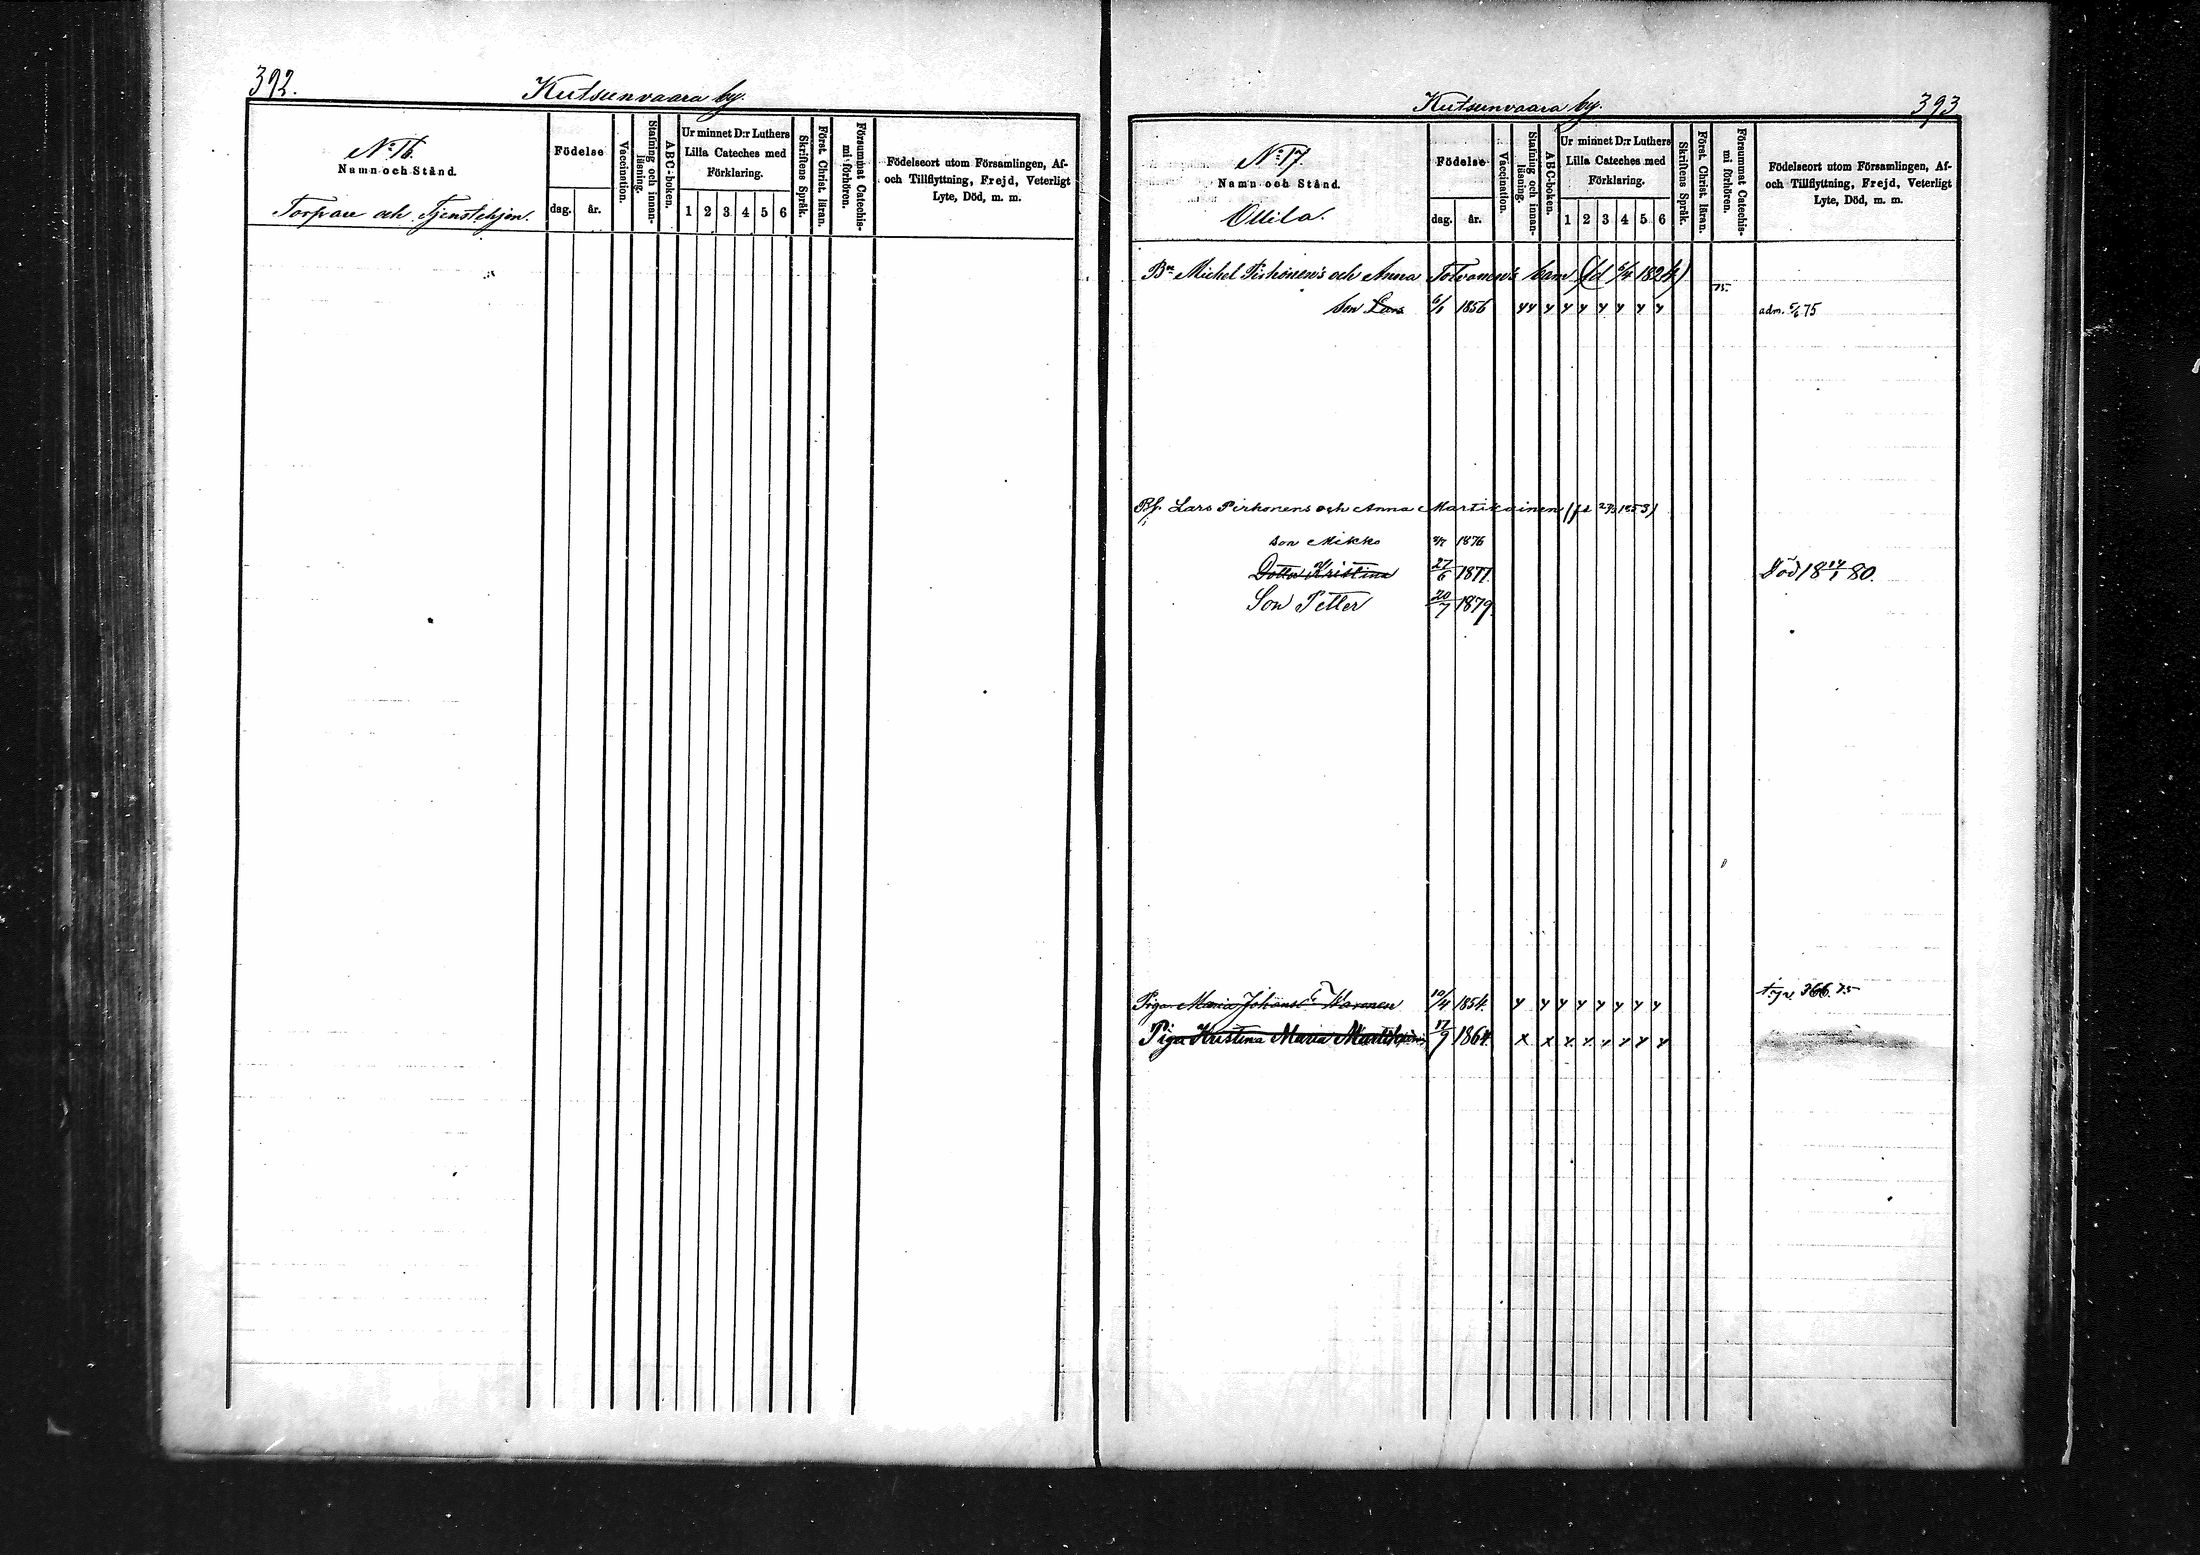 392.
Kutsunvaara by.
No 16.
Namn och Stånd.
Torpare och Tjenstehjon.
Födelse
dag.
år.
Vaccination.
Stafning och innan-
läsning.
ABC-boken.
Ur minnet D:r Luthers
Lilla Cateches med
Förklaring.
1 2 3 4 5 6
Skriftens Språk.
Först. Christ. läran.
Försummat Catechis-
mi förhören.
Födelseort utom Församlingen, Af-
och Tillflyttning, Frejd, Veterligt
Lyte, Död, m. m.
Kutsunvaara by.
393
No 17.
Namn och Stånd.
Ollila.
Födelse
dag.
år.
Vaccination.
Stafning och innan-
läsning.
ABC-boken.
Ur minnet D:r Luthers
Lilla Cateches med
Förklaring.
1 2 3 4 5 6
Skriftens Språk.
Först. Christ. läran.
Försummat Catechis-
mi förhören.
Födelseort utom Församlingen, Af-
och Tillflyttning, Frejd, Veterligt
Lyte, Död, m. m.
Bn Michel Pirhonen's och Anna Tolvanen's barn 1824)
75.
Son Lars 6/1 1856 adm. 75
Lars Pirhonens och Anna Martikainen 1853)
son Mikko 1876
Dotter Kristina 27/6 1877 Död 18 14/1 80.
Son Petter 20/7 1879
Piga Maria Johansd:r 10/4 1854 366. 75
Piga Kristina Maria Martikainen 17/9 1864